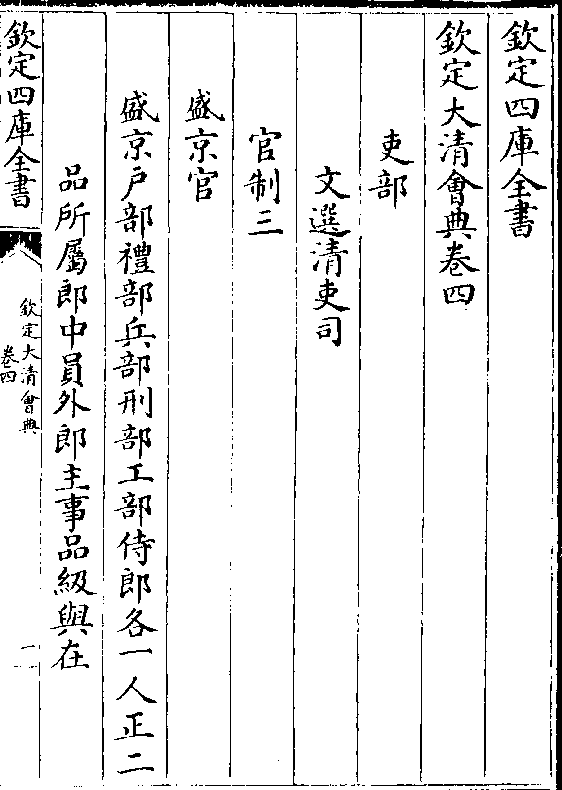 欽定四庫全書
欽定大清會典卷四
吏部
文選清吏司
官制三
盛京官
盛京戶部禮部兵部刑部工部侍郎各一人正二
品所屬郎中員外郎主事品級與在
欽定四庫全書
欽定大清會典
卷四
一